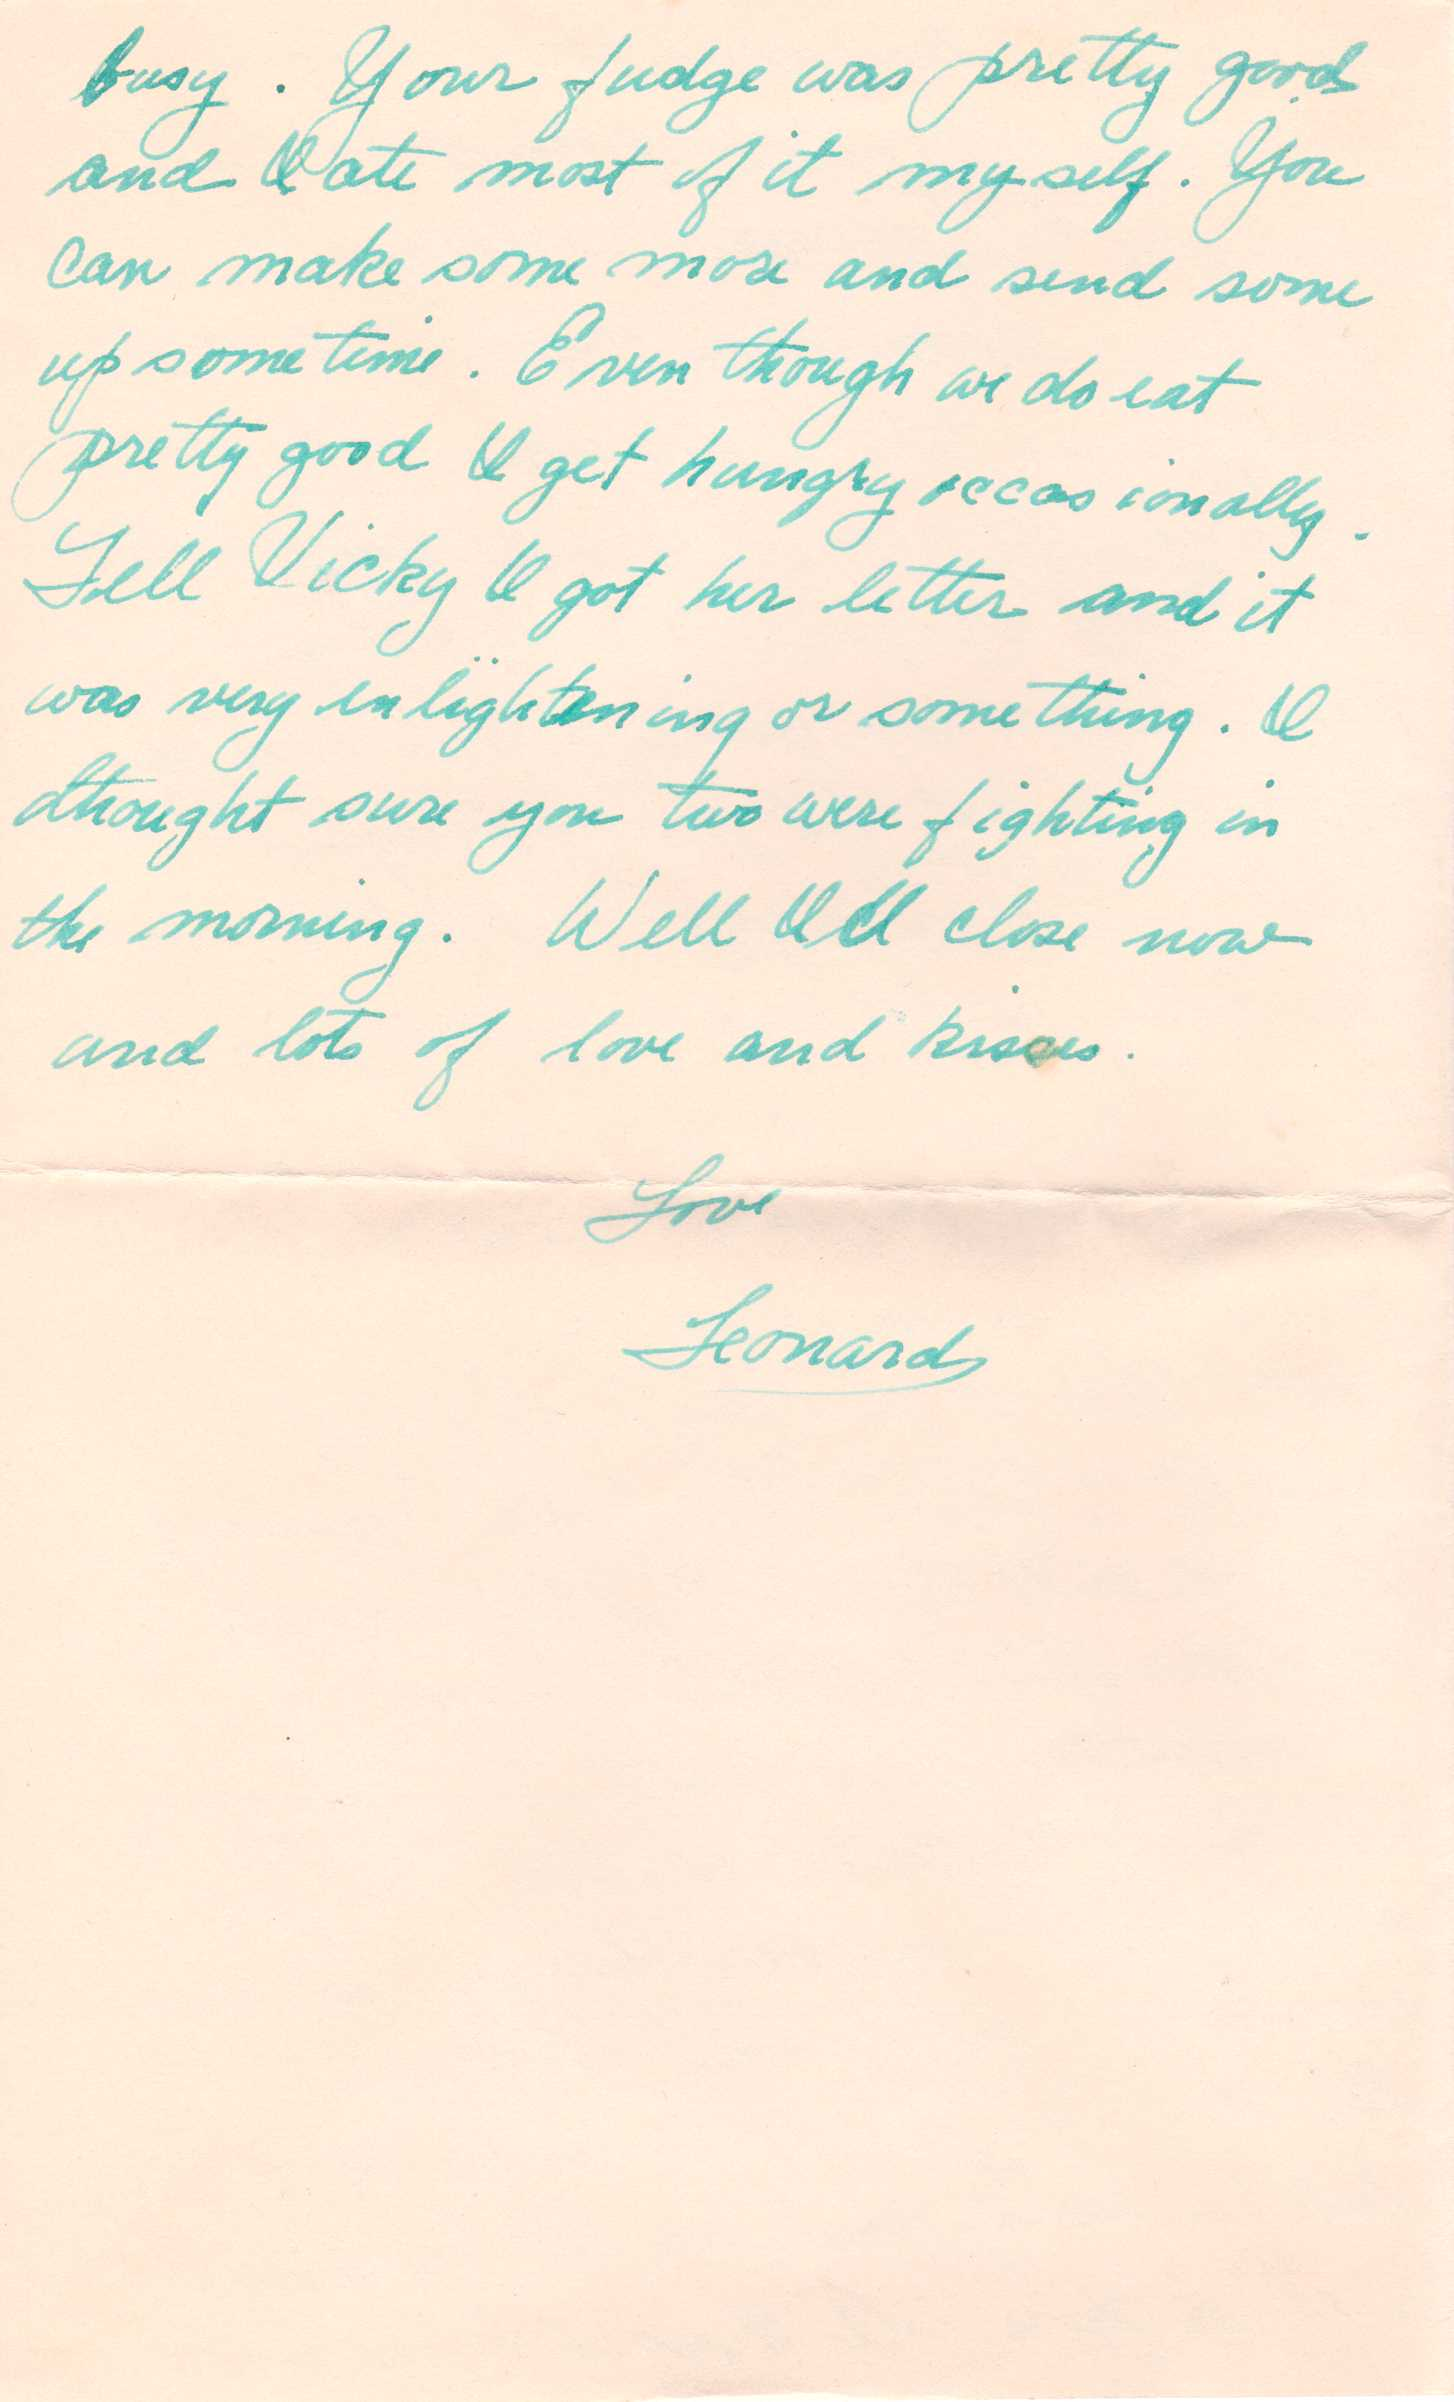 busy. Your fudge was pretty good
and I ate most of it myself. You
can make some more and send some
up sometime. Even though we do eat
pretty good I get hungry occasionally.
Tell Vicky I got her letter and it
was very enlightening or something. I
thought sure you two were fighting in
the morning. Well I'll close now
and lots of love and kisses.
Love
Leonard